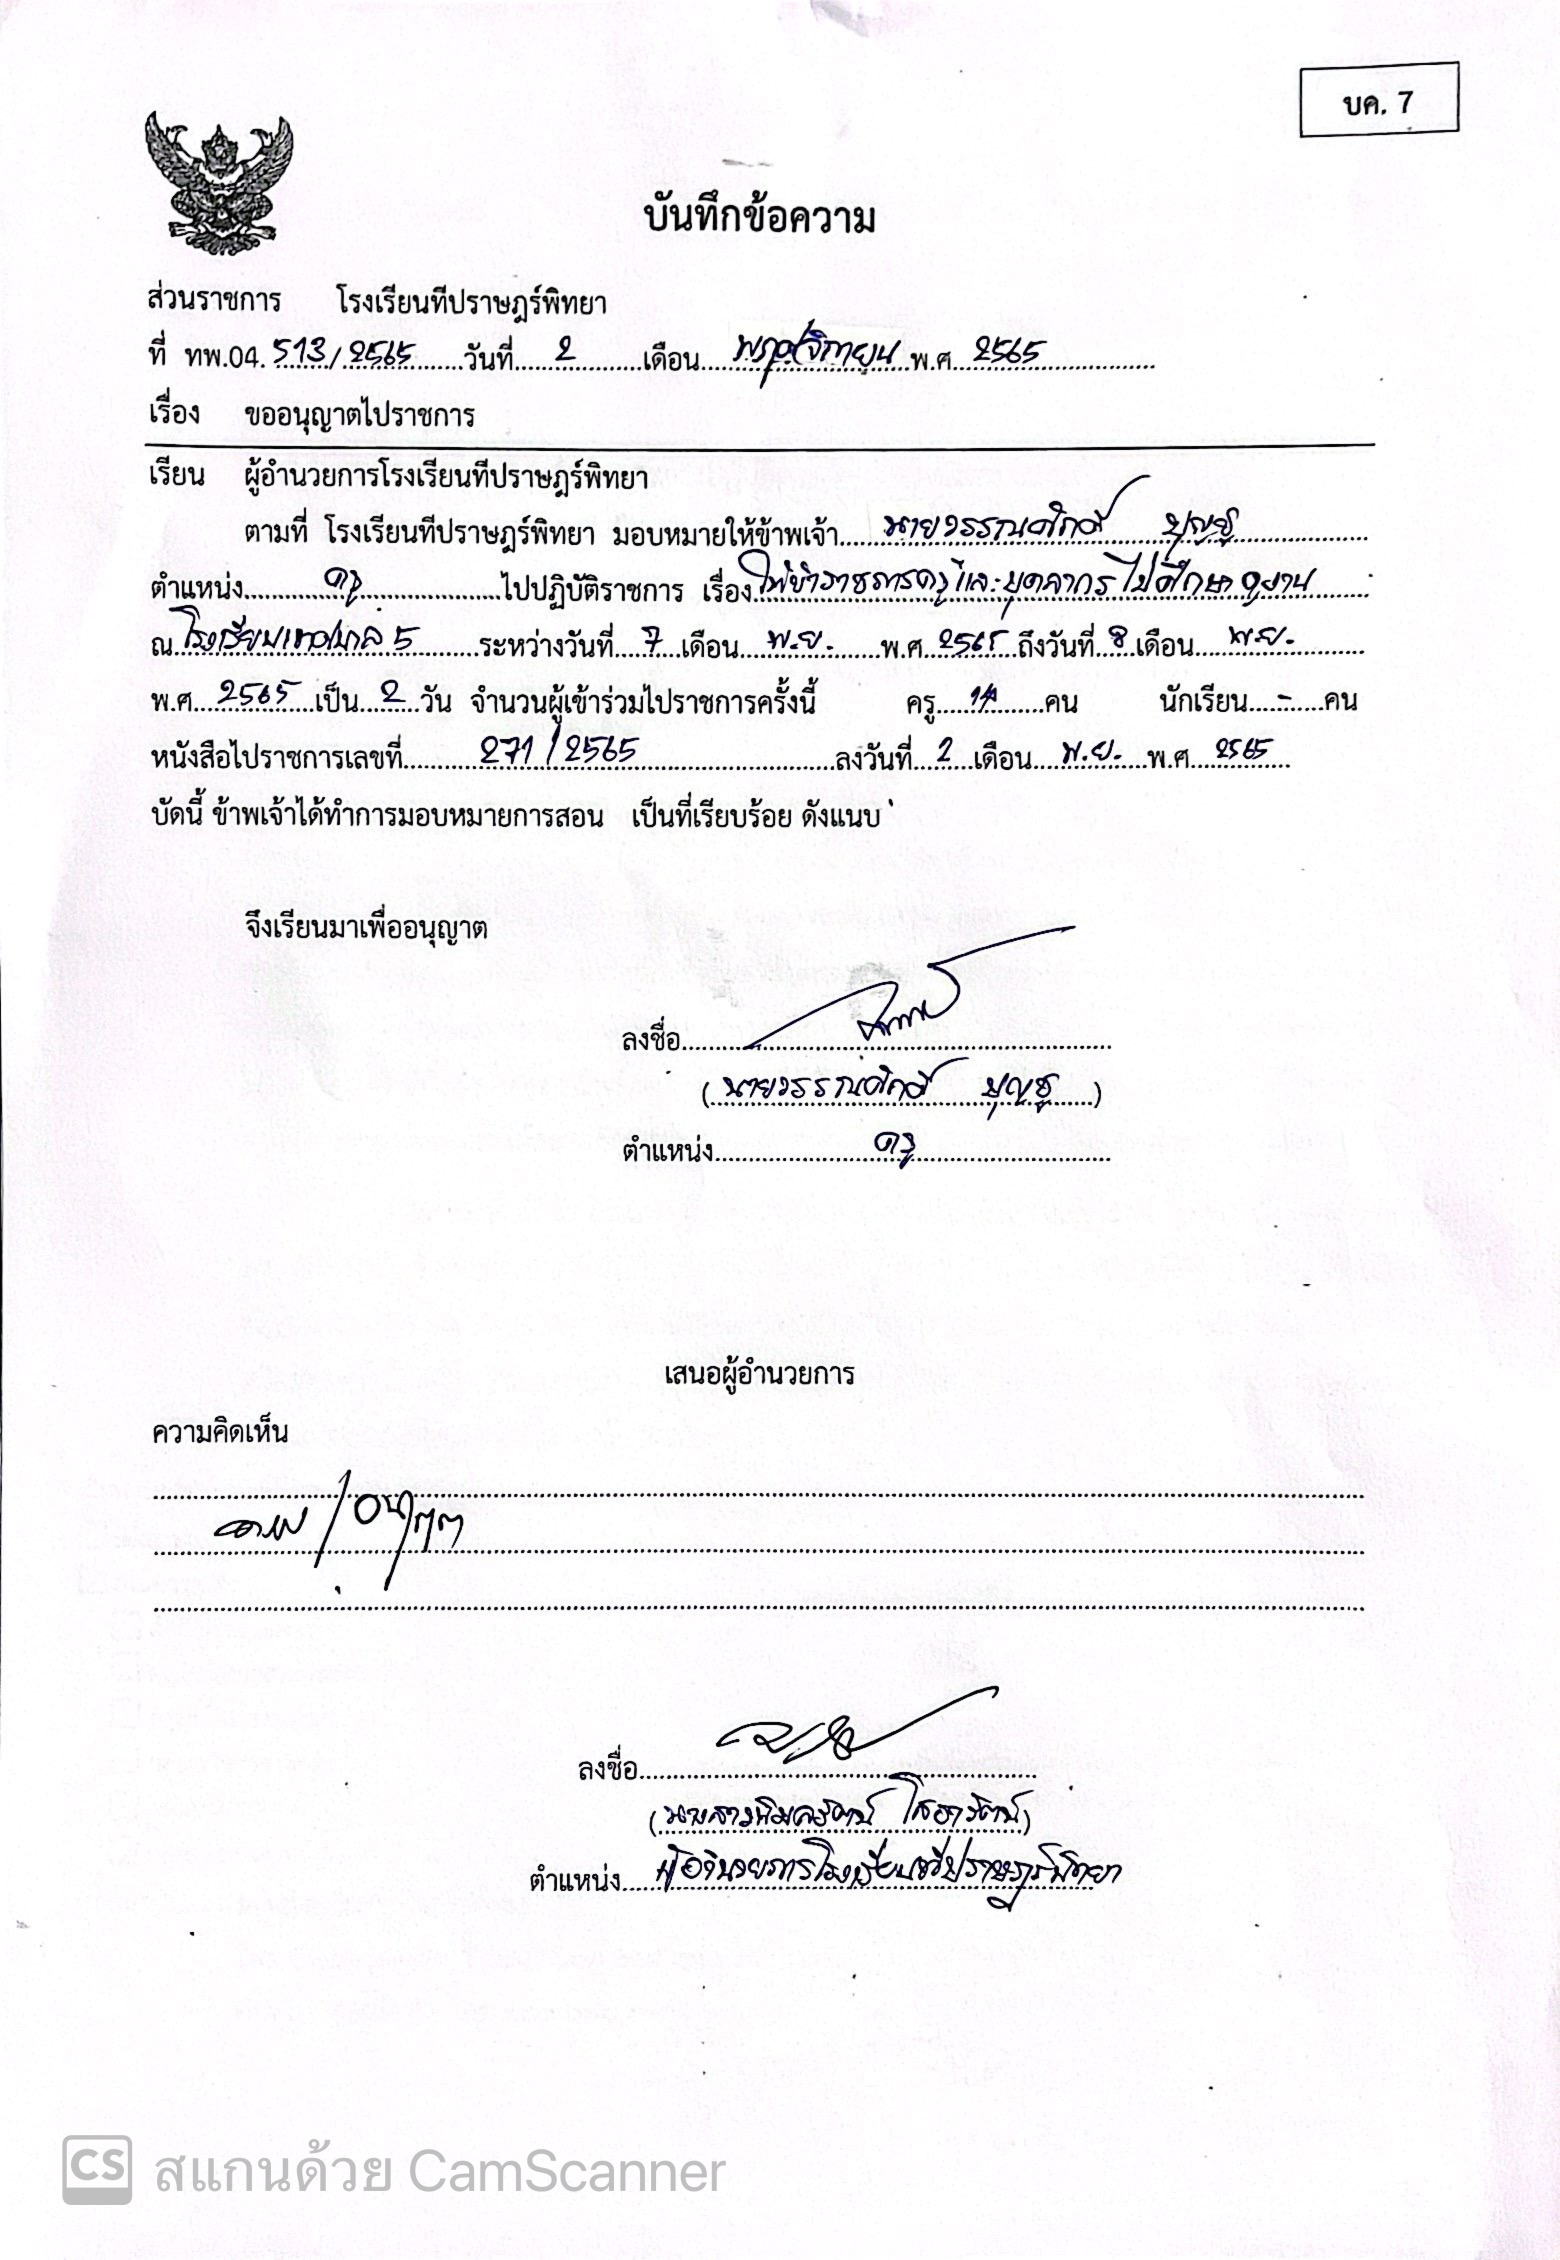 บค. 7
บันทึกข้อความ
ส่วนราชการ โรงเรียนทีปราษฎร์พิทยา
ที่ ทพ.04. 513/2565 วันที่ 2 เดือน พฤศจิกายน พ.ศ. 2565
เรื่อง ขออนุญาตไปราชการ
เรียน ผู้อำนวยการโรงเรียนทีปราษฎร์พิทยา
ตามที่ โรงเรียนทีปราษฎร์พิทยา มอบหมายให้ข้าพเจ้า นายวรรณศักดิ์ บุญชู
ตำแหน่ง ครู ไปปฏิบัติราชการ เรื่อง ให้ข้าราชการครูและบุคลากรไปศึกษาดูงาน
ณ โรงเรียนเทศบาล 5 ระหว่างวันที่ 7 เดือน พ.ย. พ.ศ. 2565 ถึงวันที่ 8 เดือน พ.ย.
พ.ศ. 2565 เป็น 2 วัน จำนวนผู้เข้าร่วมไปราชการครั้งนี้ ครู คน นักเรียน - คน
หนังสือไปราชการเลขที่ 271/2565 ลงวันที่ 2 เดือน พ.ย. พ.ศ. 2565
บัดนี้ ข้าพเจ้าได้ทำการมอบหมายการสอน เป็นที่เรียบร้อย ดังแนบ
จึงเรียนมาเพื่ออนุญาต
ลงชื่อ
(นายวรรณศักดิ์ บุญชู)
ตำแหน่ง ครู
เสนอผู้อำนวยการ
ความคิดเห็น
ทราบ/อนุญาต
ลงชื่อ
(นางสาว)
ตำแหน่ง ผู้อำนวยการโรงเรียนทีปราษฎร์พิทยา
CS สแกนด้วย CamScanner